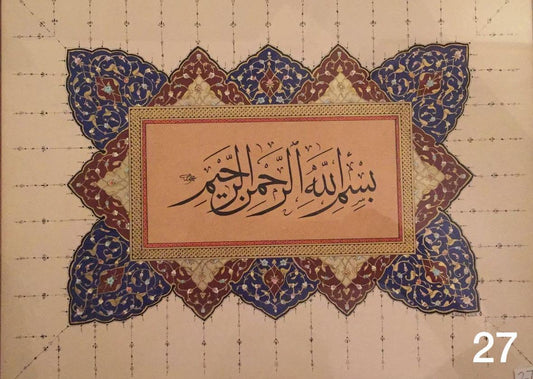 بِسْمِ اللهِ الرَّحْمٰنِ الرَّحِيْمِ
27
27